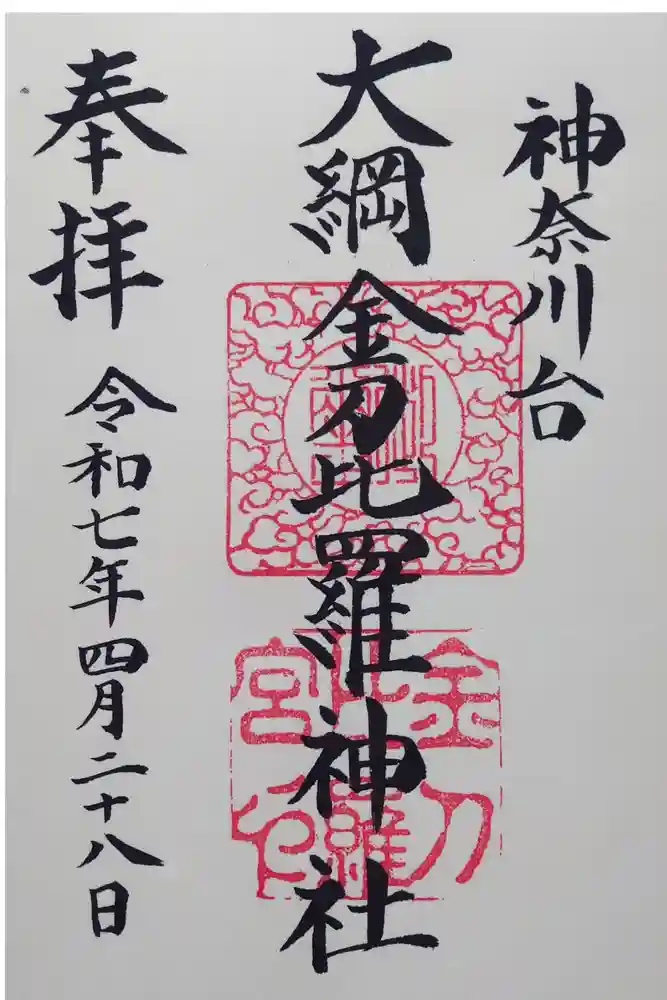 神奈川台
大綱金刀比羅神社
奉拝
令和七年四月二十八日
金刀
比羅
宮